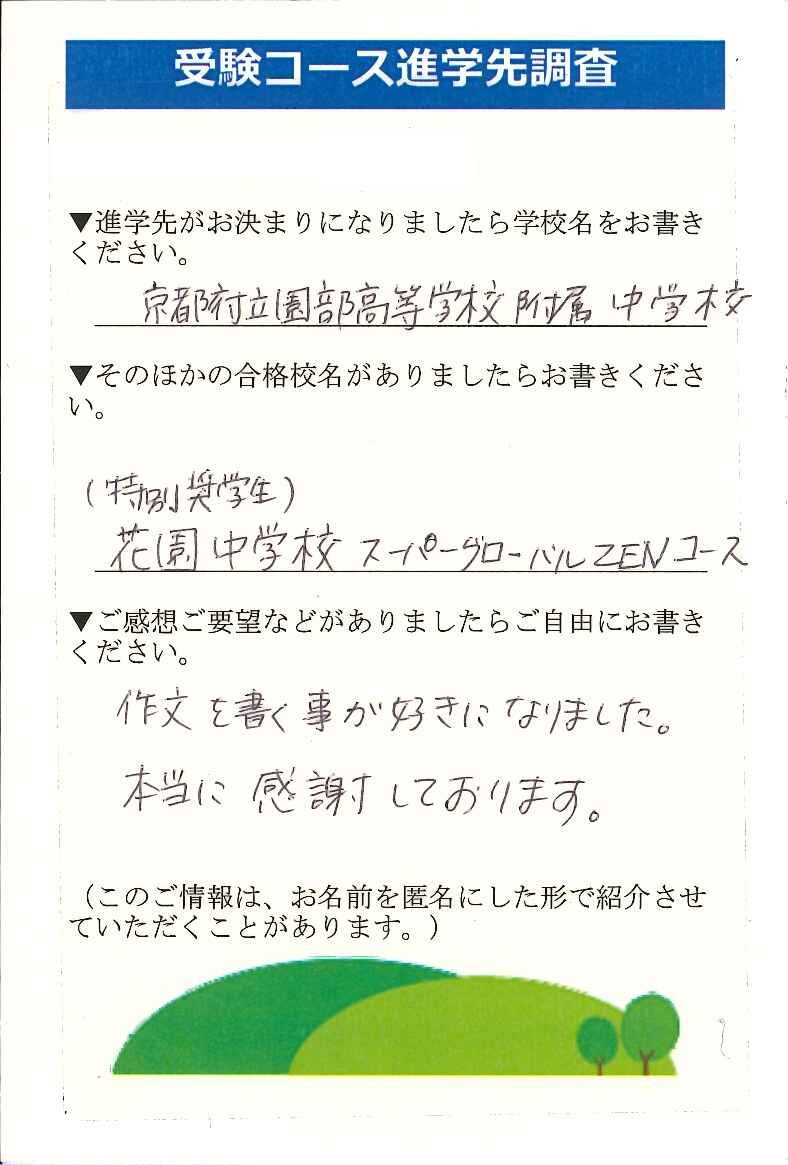 受験コース進学先調査
▼進学先がお決まりになりましたら学校名をお書き
ください。
京都府立園部高等学校附属中学校
▼そのほかの合格校名がありましたらお書きくださ
い。
（特別奨学生）
花園中学校スーパーグローバルZENコース
▼ご感想ご要望などがありましたらご自由にお書き
ください。
作文を書く事が好きになりました。
本当に感謝しております。
（このご情報は、お名前を匿名にした形で紹介させ
ていただくことがあります。）